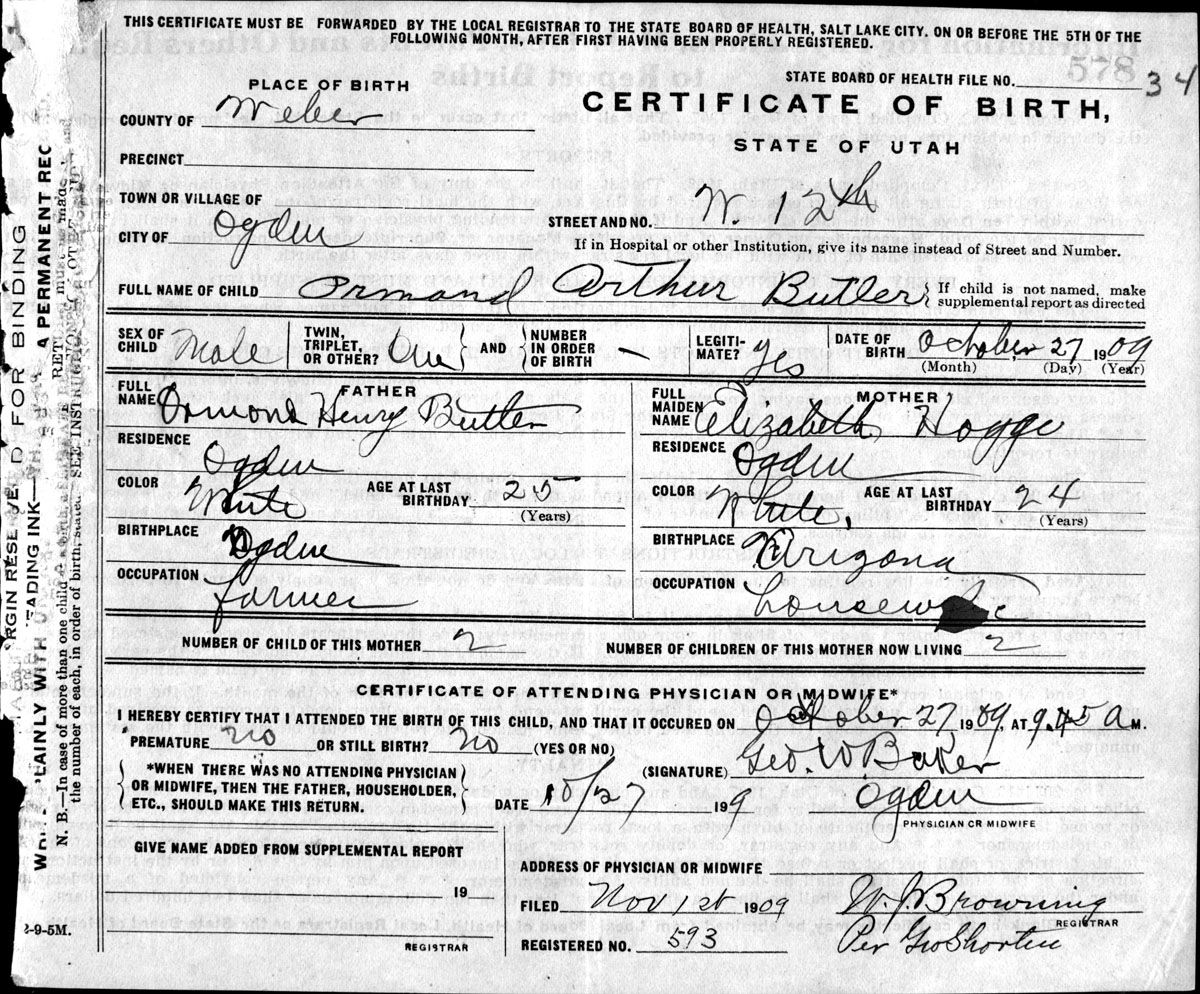 THIS CERTIFICATE MUST BE FORWARDED BY THE LOCAL REGISTRAR TO THE STATE BOARD OF HEALTH, SALT LAKE CITY. ON OR BEFORE THE 5TH OF THE
FOLLOWING MONTH, AFTER FIRST HAVING BEEN PROPERLY REGISTERED.
578
STATE BOARD OF HEALTH FILE NO. 34
PLACE OF BIRTH
CERTIFICATE OF BIRTH,
COUNTY OF Weber
STATE OF UTAH
PRECINCT
TOWN OR VILLAGE OF
STREET AND NO. N. 12th
CITY OF Ogden
If in Hospital or other Institution, give its name instead of Street and Number.
FULL NAME OF CHILD Ormond Arthur Butler { If child is not named, make
supplemental report as directed
SEX OF CHILD Male TWIN, TRIPLET, OR OTHER? One AND NUMBER IN ORDER OF BIRTH - LEGITI-MATE? yes DATE OF BIRTH October 27 1909
(Month) (Day) (Year)
FATHER
FULL NAME Ormond Henry Butler
RESIDENCE Ogden
COLOR White AGE AT LAST BIRTHDAY 25
(Years)
BIRTHPLACE Ogden
OCCUPATION farmer
MOTHER
FULL MAIDEN NAME Elizabeth Hogge
RESIDENCE Ogden
COLOR White, AGE AT LAST BIRTHDAY 24
(Years)
BIRTHPLACE Arizona
OCCUPATION housewife
NUMBER OF CHILD OF THIS MOTHER 2 NUMBER OF CHILDREN OF THIS MOTHER NOW LIVING 2
CERTIFICATE OF ATTENDING PHYSICIAN OR MIDWIFE*
I HEREBY CERTIFY THAT I ATTENDED THE BIRTH OF THIS CHILD, AND THAT IT OCCURED ON October 27 1909, AT 9.45 A M.
PREMATURE no OR STILL BIRTH? no (YES OR NO)
(SIGNATURE) Geo. W Baker
*WHEN THERE WAS NO ATTENDING PHYSICIAN
OR MIDWIFE, THEN THE FATHER, HOUSEHOLDER,
ETC., SHOULD MAKE THIS RETURN.
DATE 10/27 199 Ogden
PHYSICIAN OR MIDWIFE
GIVE NAME ADDED FROM SUPPLEMENTAL REPORT
19
REGISTRAR
ADDRESS OF PHYSICIAN OR MIDWIFE
FILED Nov 1st 1909 W. J. Browning
REGISTRAR
REGISTERED NO. 593 Per Geo Shorten
2-9-5M.
RGIN RESERVED FOR BINDING
PLAINLY WITH EADING INK—A PERMANENT REC
N. B.—In case of more than one child RETURN must be made and
the number of each, in order of birth, stated. SEE INSTRUCTIONS